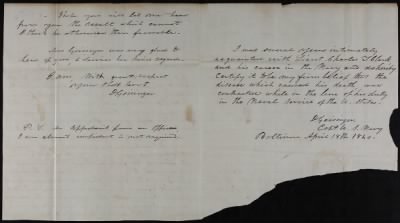 When you will let me hear
from you the result which cannot
I think be otherwise than favorable.
Mrs Geisinger was very glad to
hear of you & desires her kind regards.
I am, With great respect
your Obt Servt
D Geisinger
P. S. An Affidavit from an Officer
I am almost confident is not required.
I was several years intimately
acquainted with Lieut Charles T Clark
and his career in the Navy and do hereby
Certify it to be my firm belief that the
disease which caused his death was
contracted while in the line of his duty
in the Naval Service of the U. States.
D Geisinger
Capt U. S. Navy
Baltimore April 18th